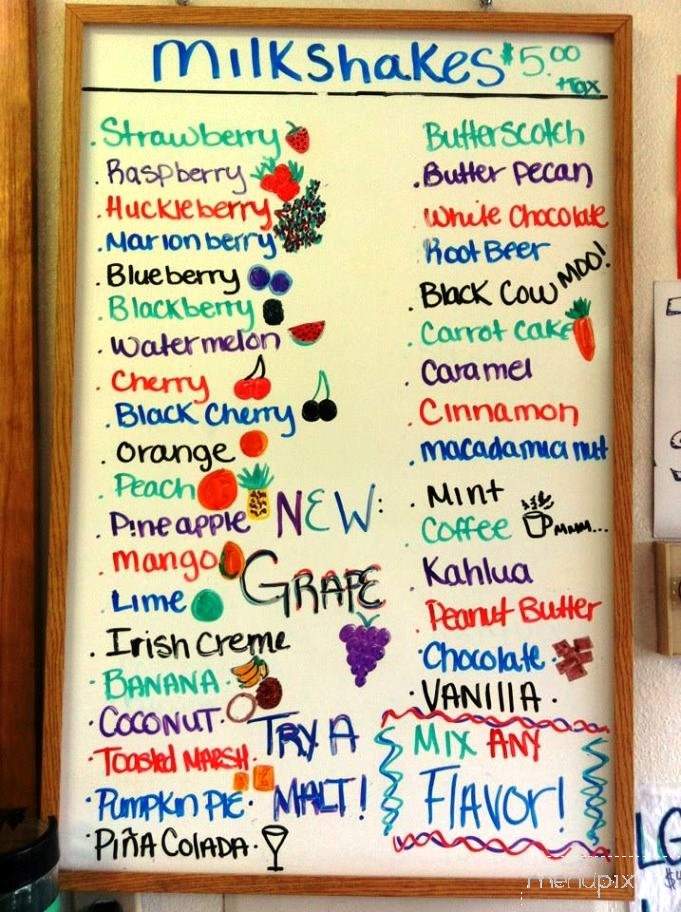 Milkshakes $5.00
+Tax
. Strawberry
. Raspberry
. Huckleberry
. Marionberry
. Blueberry
. Blackberry
. Watermelon
. Cherry
. Black Cherry
. Orange
. Peach
. Pineapple
. Mango
. Lime
. Irish Creme
. Banana .
. Coconut .
. Toasted Marsh.
. Pumpkin Pie .
. Piña Colada .
NEW:
GRAPE
TRY A
MALT!
Butterscotch
. Butter Pecan
White Chocolate
Root Beer
. Black Cow MOO!
. Carrot Cake
. Caramel
. Cinnamon
. macadamia nut
. Mint
. Coffee mmm...
. Kahlua
. Peanut Butter
. Chocolate .
. VANIllA .
MIX ANY
Flavor!
menupix
LG